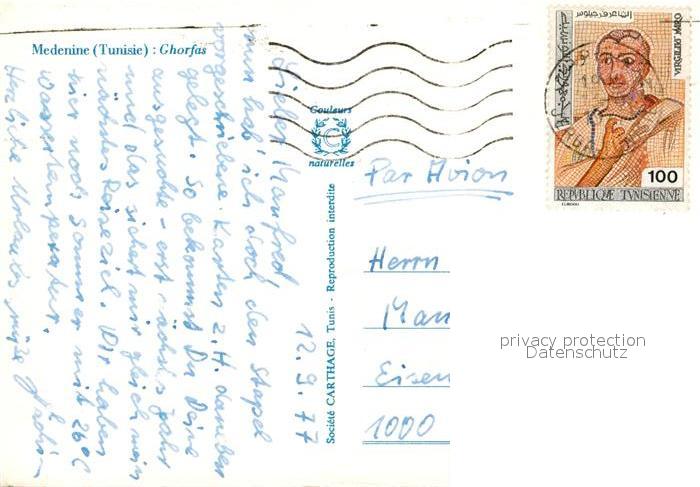 Medenine (Tunisie) : Ghorfas
Couleurs
C
naturelles
Société CARTHAGE, Tunis - Reproduction interdite
12.9.77
Lieber Manfred,
nun hab' ich doch den Stapel
vorgeschriebene Karten z.H. daneben
gelegt. So bekommst Du Deine
erst nächstes Jahr
und das sichert mir gleich mein
nächstes Reiseziel. Wir haben
hier noch Sommer mit 26°C
Wassertemperatur.
Herzliche Urlaubsgrüße
Par Avion
Herrn
Man
Eisen
1000
VERGILIUS MARO
100
REPUBLIQUE TUNISIENNE
privacy protection
Datenschutz